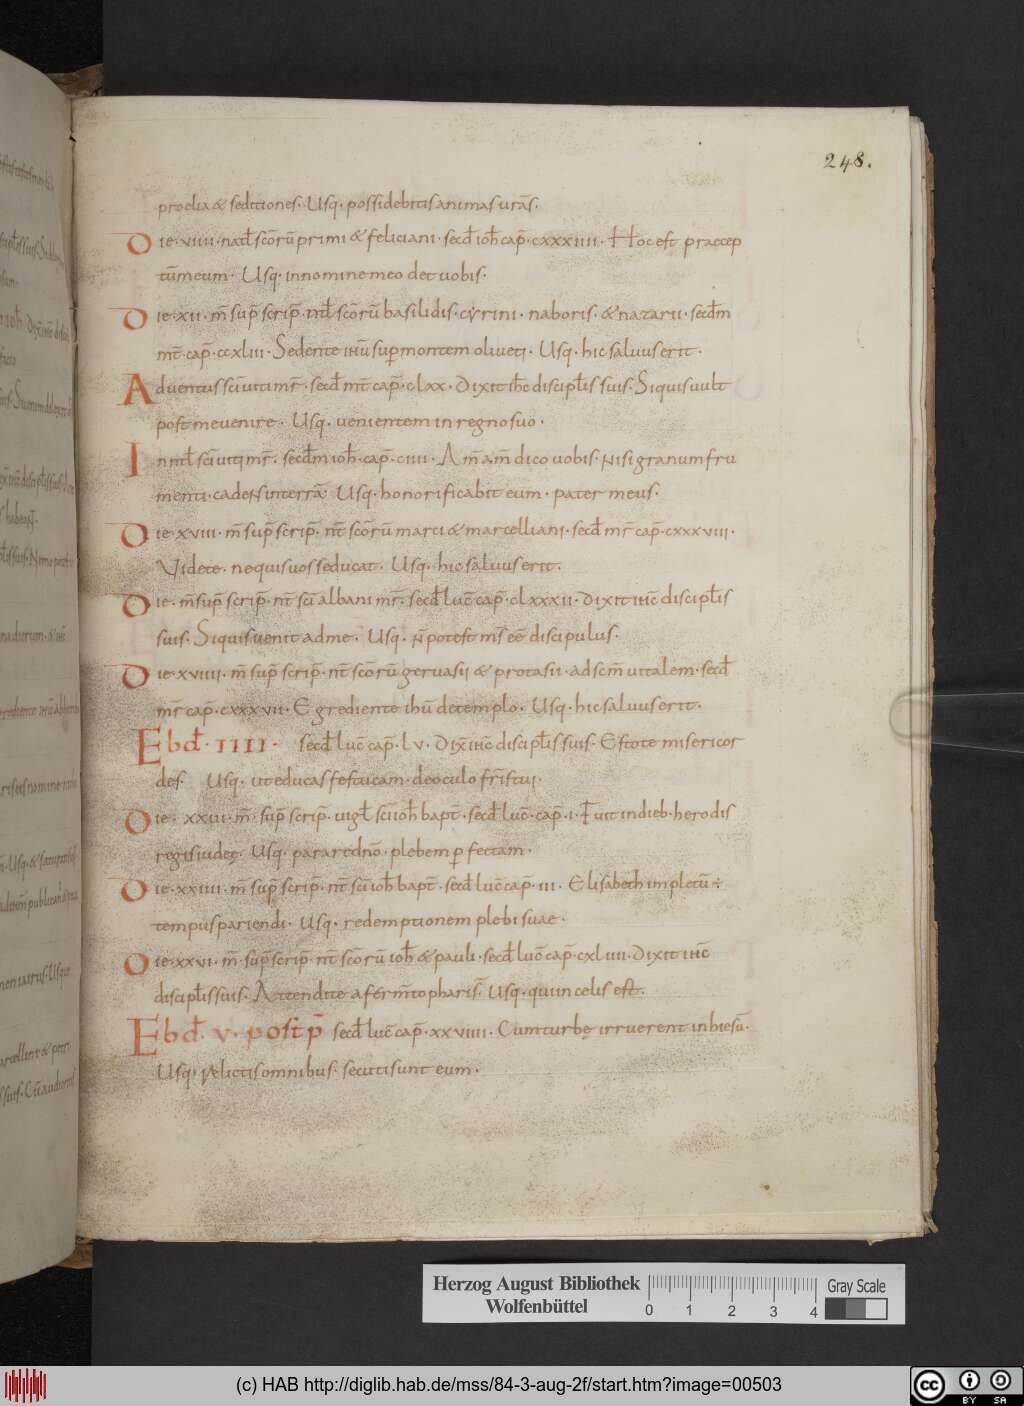 248.
proelia & seditiones. Usq. possidebitis animas uras.
Die. viiii. natł scorū primi & feliciani. secd ioh cap̄. cxxxiiii. Hoc est praecep
tū meum. Usq. innomine meo det uobis.
Die. xii. m̄ sup̄ scrip̄. ntł scorū basilidis. cyrini. naboris. & nazarii. secdm
mt̄. cap̄. ccxliii. Sedente ihū sup montem oliueti. Usq. hic saluus erit.
Aduentus sci uiti mr̄. secd mt̄ cap̄. clxx. Dixit ihc̄ discipłis suis. Si quis uult
post me uenire. Usq. uenientem in regno suo.
In ntł sci uiti mr̄. secdm ioh. cap̄. ciiii. Am̄ am̄ dico uobis. Nisi granum fru
menti. cadens in terrā Usq. honorificabit eum. pater meus.
Die. xviii. m̄ sup̄ scrip̄. nt̄ scorū marci & marcelliani. secd mr̄ cap̄. cxxxviii.
Videte. nequis uos seducat. Usq. hic saluus erit.
Die. m̄ sup̄ scrip̄. nt̄ sci albani mr̄. secd luc̄ cap̄. clxxxii. Dixit ihc̄ discipłis
suis. Si quis uenit ad me. Usq. n̄ potest ms̄ eē discipulus.
Die. xviiii. m̄ sup̄ scrip̄. nt̄ scorū geruasii & protasii. ad scm̄ uitalem. secd
mr̄ cap̄. cxxxvii. Egrediente ihū de templo. Usq. hic saluus erit.
Ebd. IIII. secd luc̄ cap̄. lv. Dix̄ ihc̄ discipłis suis. Estote misericor
des. Usq. ut educas festucam. de oculo fr̄is tui.
Die. xxiii. m̄. sup̄ scrip̄. uigł sci ioh bapt̄. secd luc̄. cap̄. i. Fuit in dieb. herodis
regis iudeę. Usq. parare dn̄o. plebem pfectam.
Die. xxiiii. m̄ sup̄ scrip̄. nt̄ sci ioh bapt̄. secd luc̄ cap̄. iii. Elisabeth impletū ÷
tempus pariendi. Usq. redemptionem plebi suae.
Die. xxvi. m̄. sup̄ scrip̄. nt̄ scorū ioh & pauli. secd luc̄ cap̄. cxliiii. Dixit ihc̄
discipłis suis. Attendite a fermt̄o pharis̄. Usq. qui in celis est.
Ebd. v. post p̄ secd luc̄ cap̄. xxviiii. Cum turbę irruerent in hiesū.
Usq. relictis omnibus. secuti sunt eum.
Herzog August Bibliothek
Wolfenbüttel
0 1 2 3 4
Gray Scale
(c) HAB http://diglib.hab.de/mss/84-3-aug-2f/start.htm?image=00503
cc BY SA